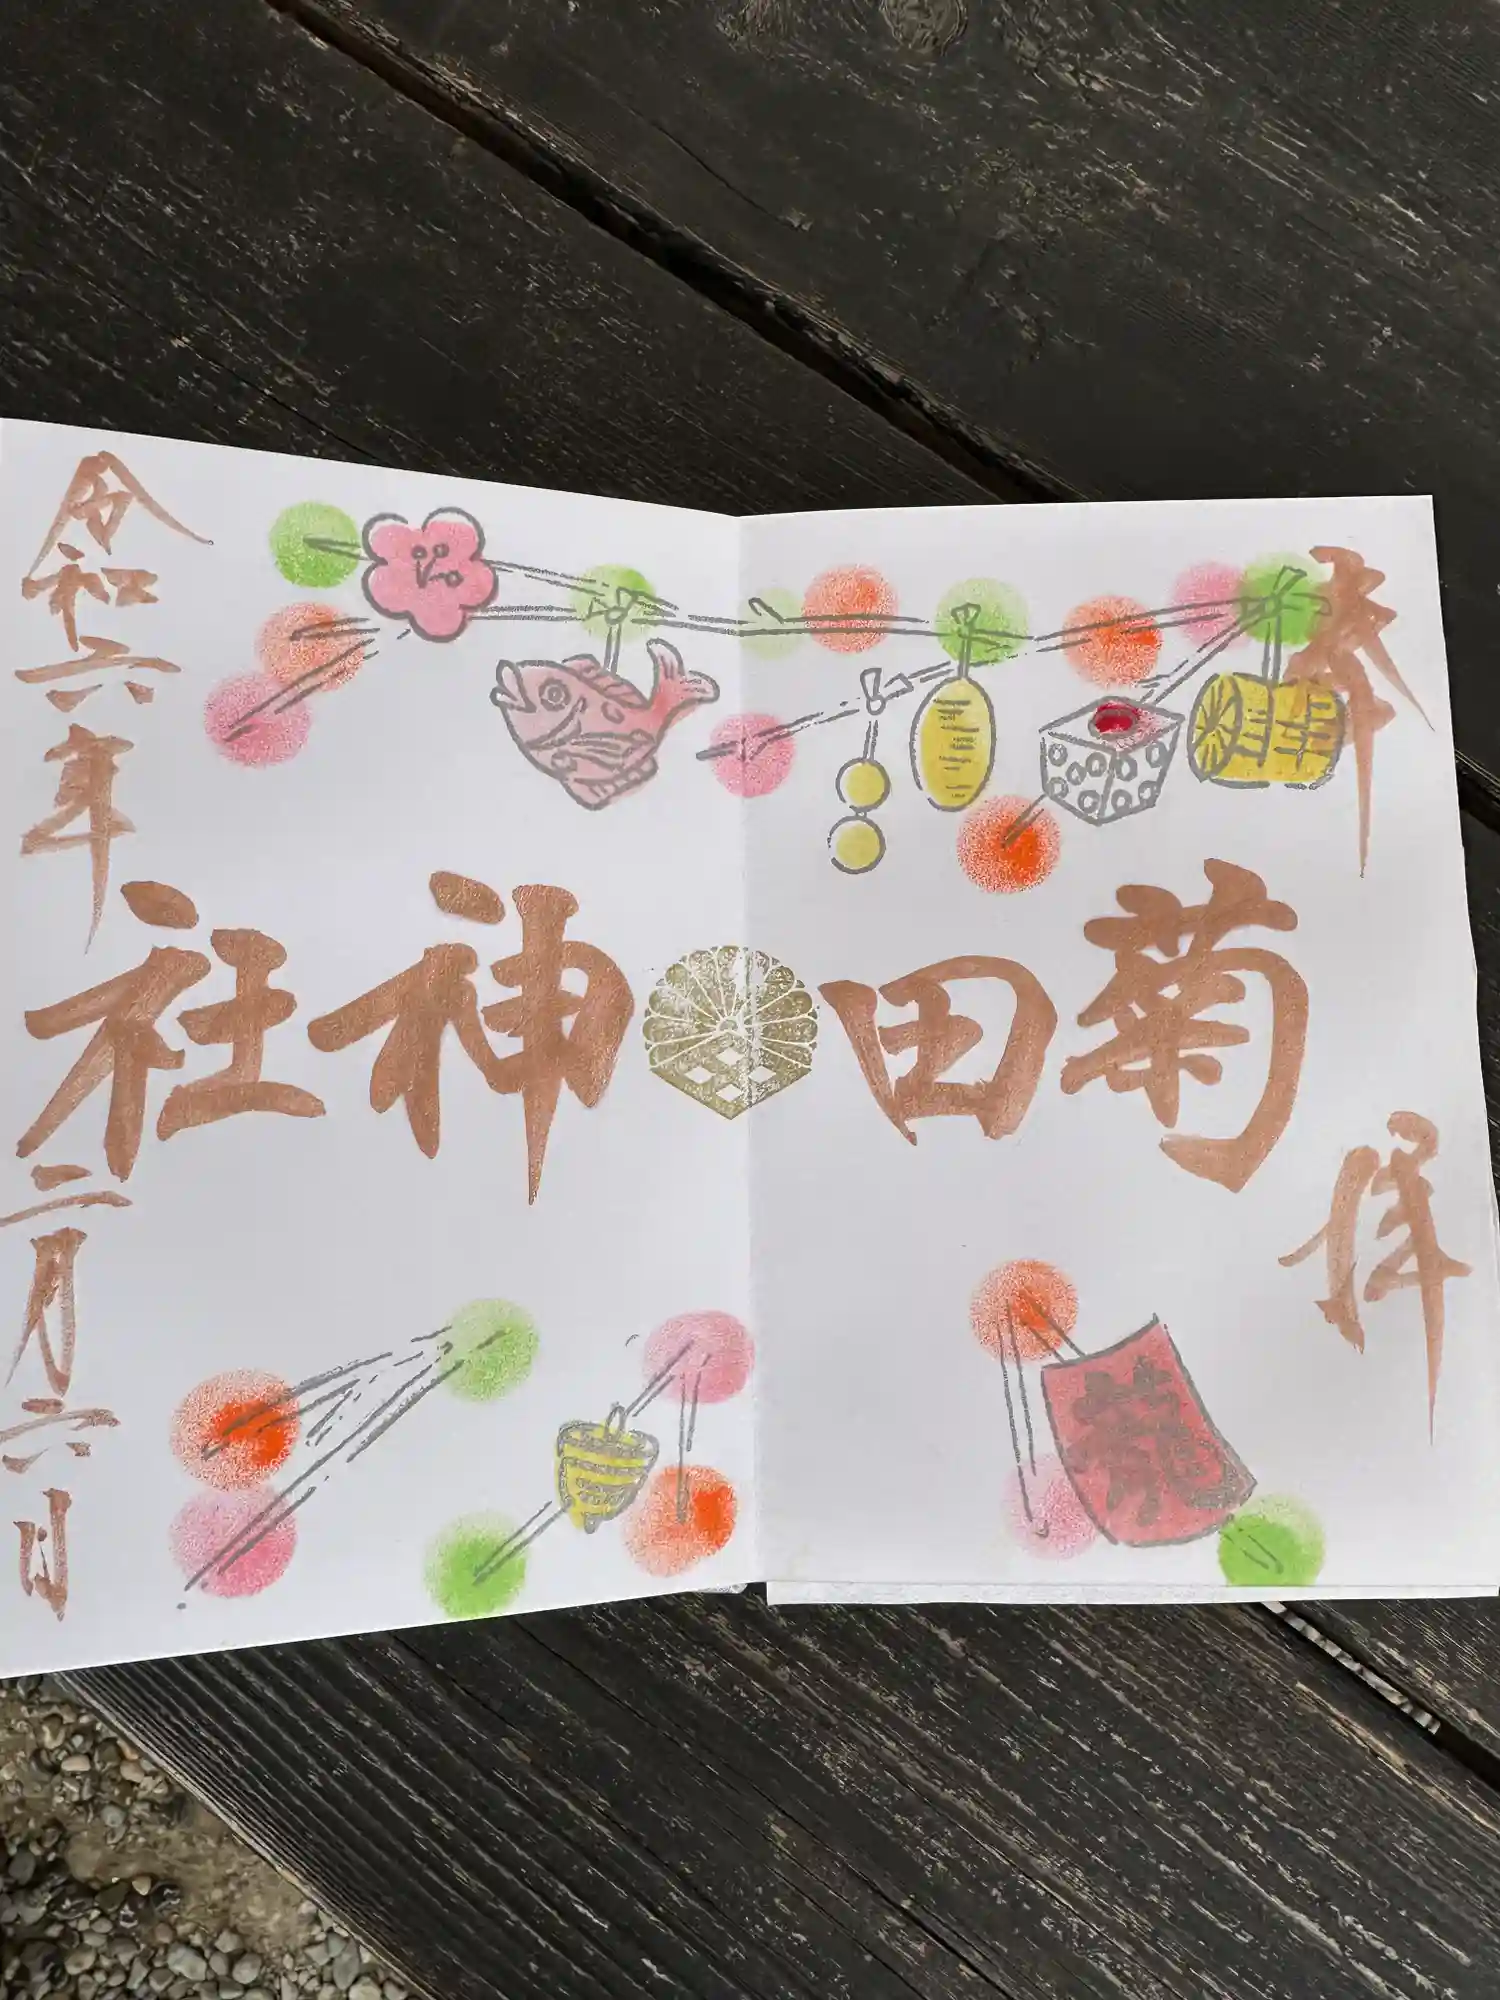 奉拝
菊田神社
令和六年二月六日
龍